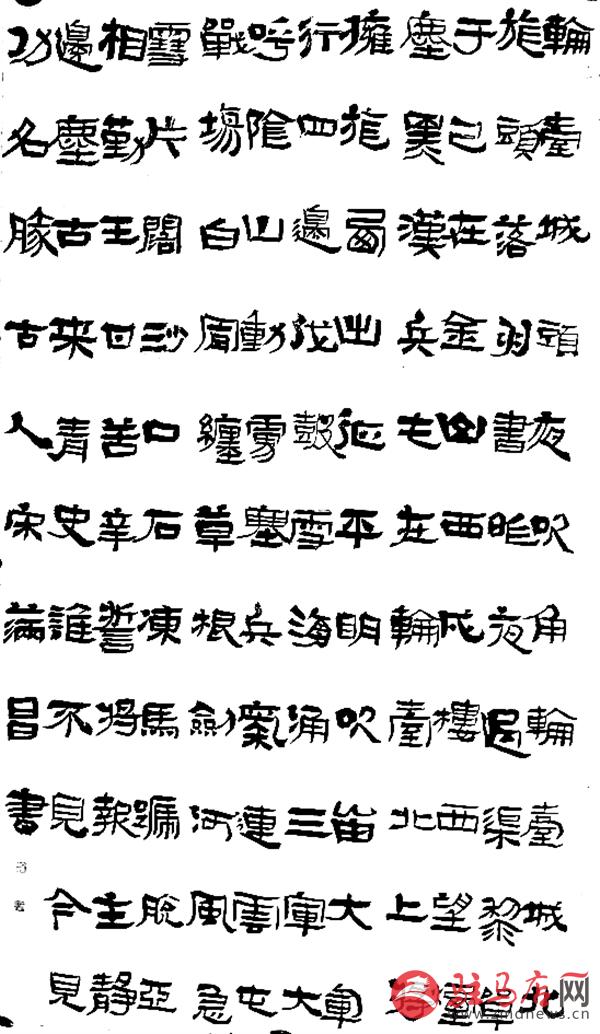 輪臺城頭夜吹角輪臺城北
旄頭落羽書昨夜過渠黎單
于已在金山西戍樓西望煙
塵黑漢兵屯在輪臺北上將
擁旄西出征平明吹笛大軍
行四邊伐鼓雪海涌三軍大
呼陰山動虜塞兵氣連雲屯
戰場白骨纏草根劍河風急
雪片闊沙口石凍馬蹄脫亞
相勤王甘苦辛誓將報主靜
邊塵古來青史誰不見今見
功名勝古人宋滿昌書
驻马店网
www.zmdnews.cn